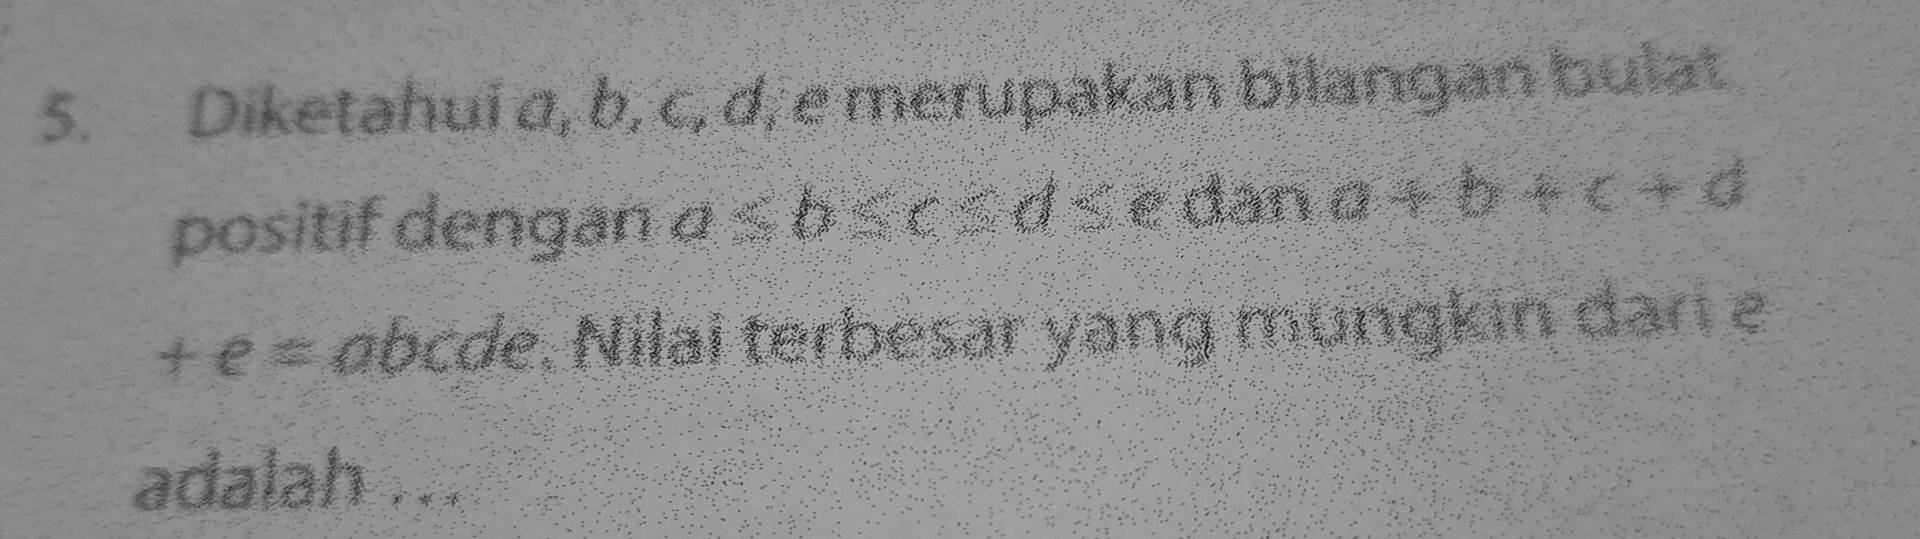 5. Diketahui a, b, c, d, e merupakan bilangan bulat
positif dengan a ≤ b ≤ c ≤ d ≤ e dan a + b + c + d
+ e = abcde. Nilai terbesar yang mungkin dari e
adalah ...